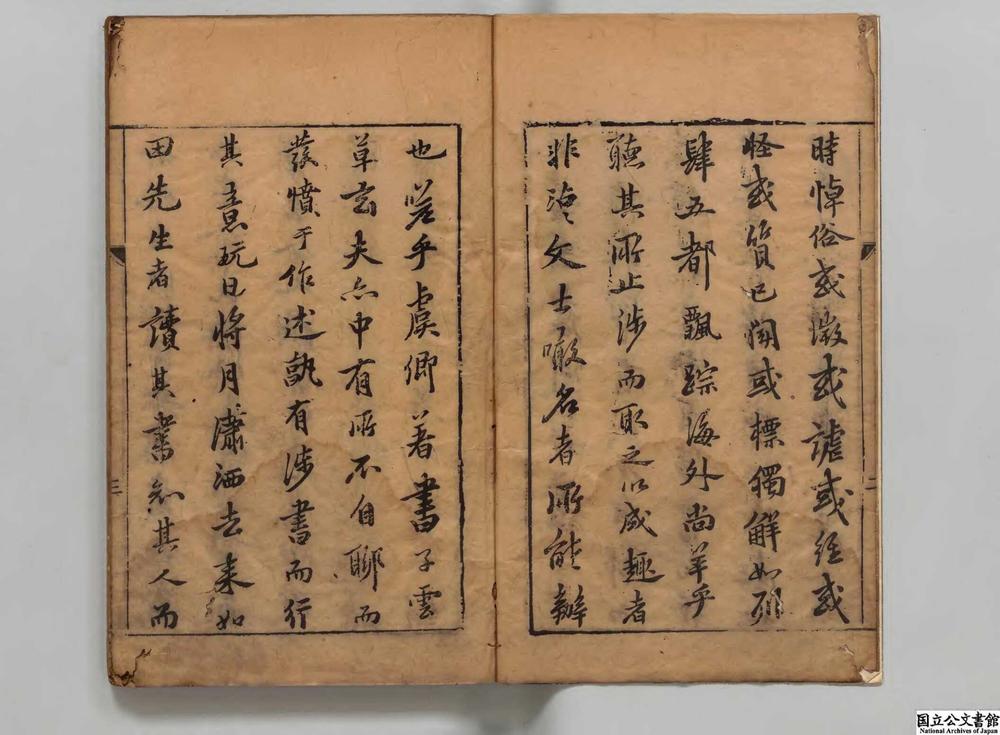 時悼俗或激或謔或經或
怪或質已聞或標獨解如列
肆五都飄踪海外尚羊乎
聽其所止涉而取之以成趣者
非謏文士噉名者所能辦
二
也嗟乎虞卿著書子雲
草玄夫亦中有所不自聊而
發憤于作述孰有涉書而行
其意玩日將月瀟洒去來如
田先生者讀其書知其人而
三
国立公文書館
National Archives of Japan